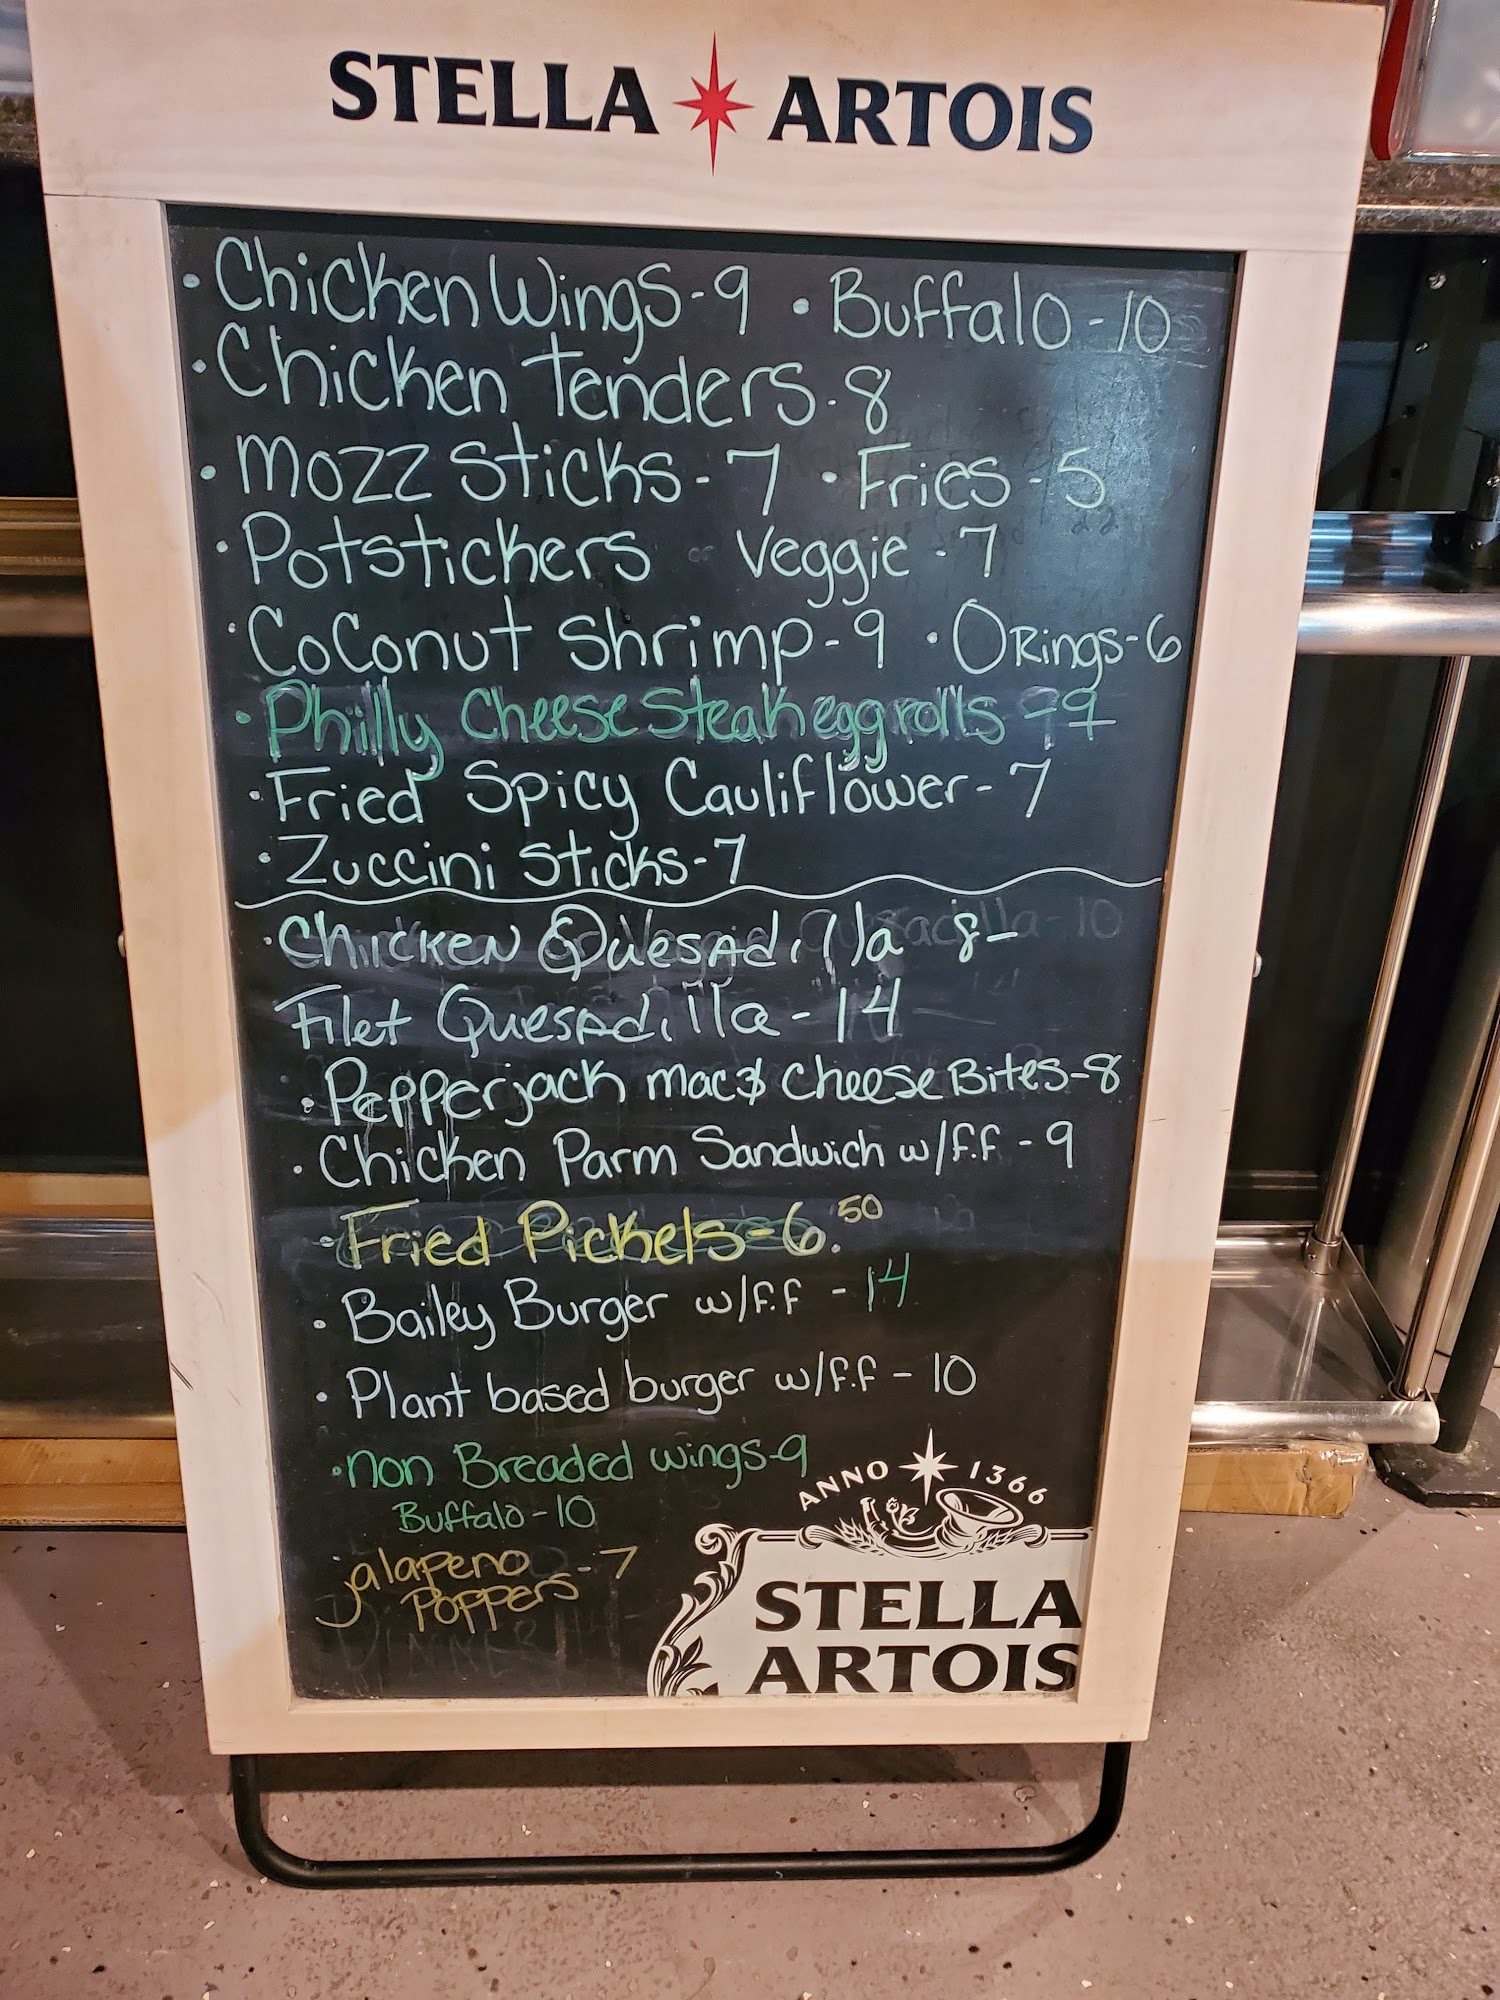 STELLA ARTOIS
• Chicken Wings - 9 • Buffalo - 10
• Chicken Tenders - 8
• Mozz Sticks - 7 • Fries - 5
• Potstickers or Veggie - 7
• Coconut Shrimp - 9 • O Rings - 6
• Philly Cheese Steak eggrolls - 9
• Fried Spicy Cauliflower - 7
• Zuccini Sticks - 7
• Chicken Quesadilla 8 -
Filet Quesadilla - 14
• Pepperjack mac & cheese Bites - 8
• Chicken Parm Sandwich w/f.f - 9
- Fried Pickels - 6.50
• Bailey Burger w/f.f - 14
• Plant based burger w/f.f - 10
• non Breaded wings - 9
Buffalo - 10
jalapeno - 7
Poppers
ANNO 1366
STELLA
ARTOIS